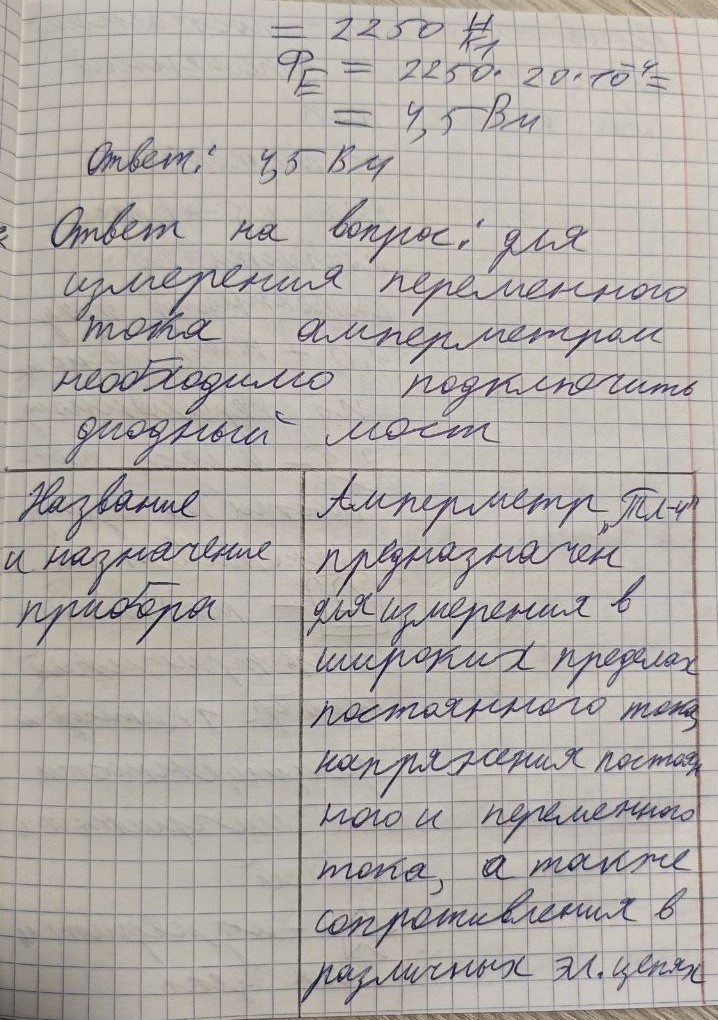 = 2250 Н/Кл
Ф_E = 2250 · 20 · 10⁻⁴ =
= 4,5 Вм
Ответ: 4,5 Вм
Ответ на вопрос: для
измерения переменного
тока амперметром
необходимо подключить
диодный мост
Название
и назначение
прибора
Амперметр „Тл-4"
предназначен
для измерения в
широких пределах
постоянного тока,
напряжения постоян
ного и переменного
тока, а также
сопротивления в
различных эл. цепях